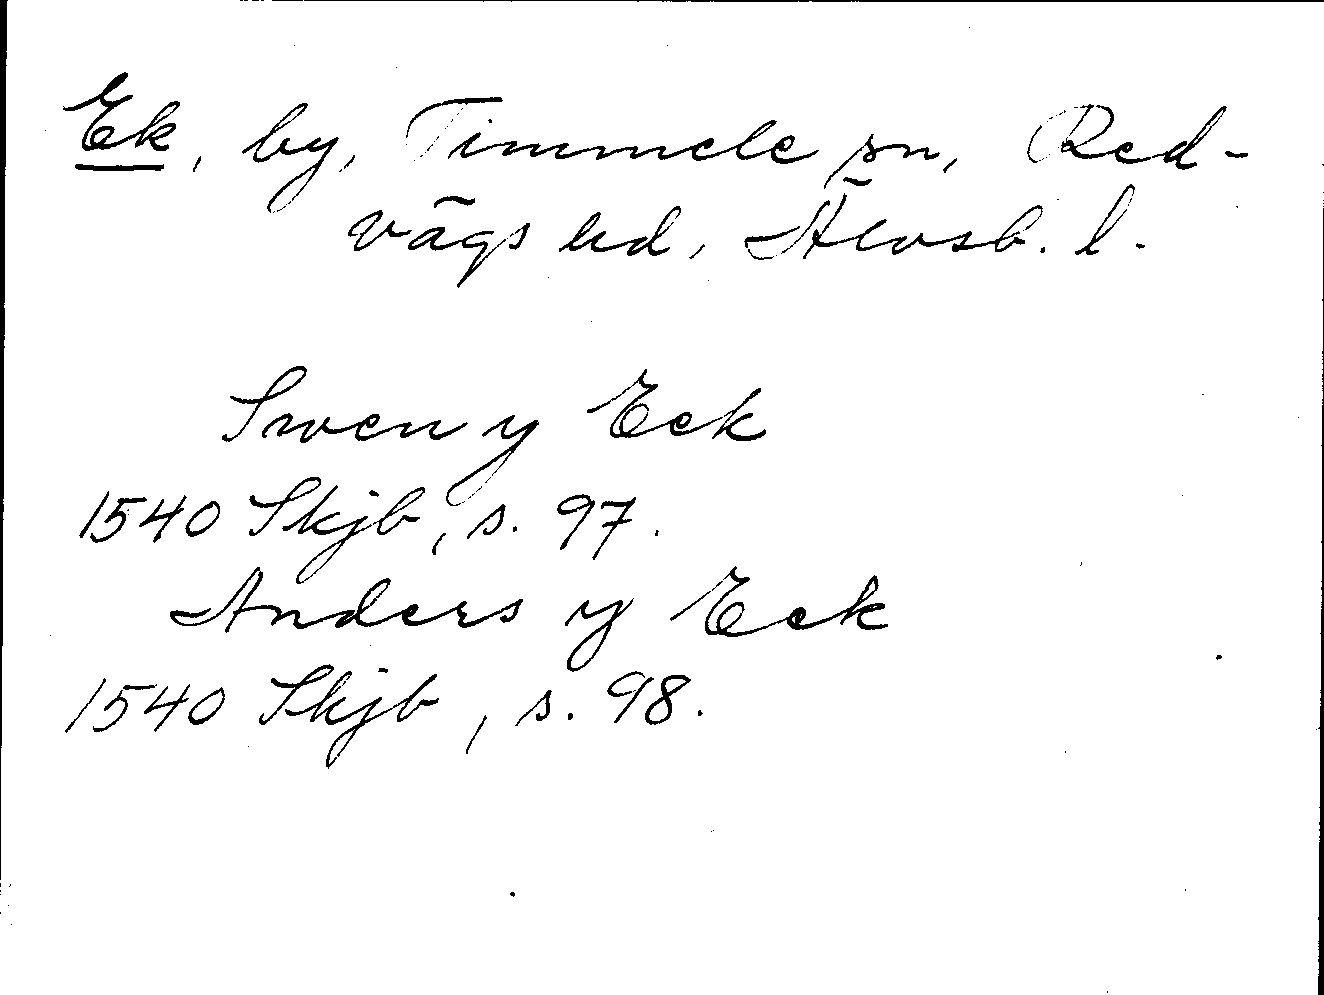 Ek, by, Timmele sn, Red-
vägs hd, Älvsb. l.
Swen y Eek
1540 Skjb, s. 97.
Anders y Eek
1540 Skjb, s. 98.